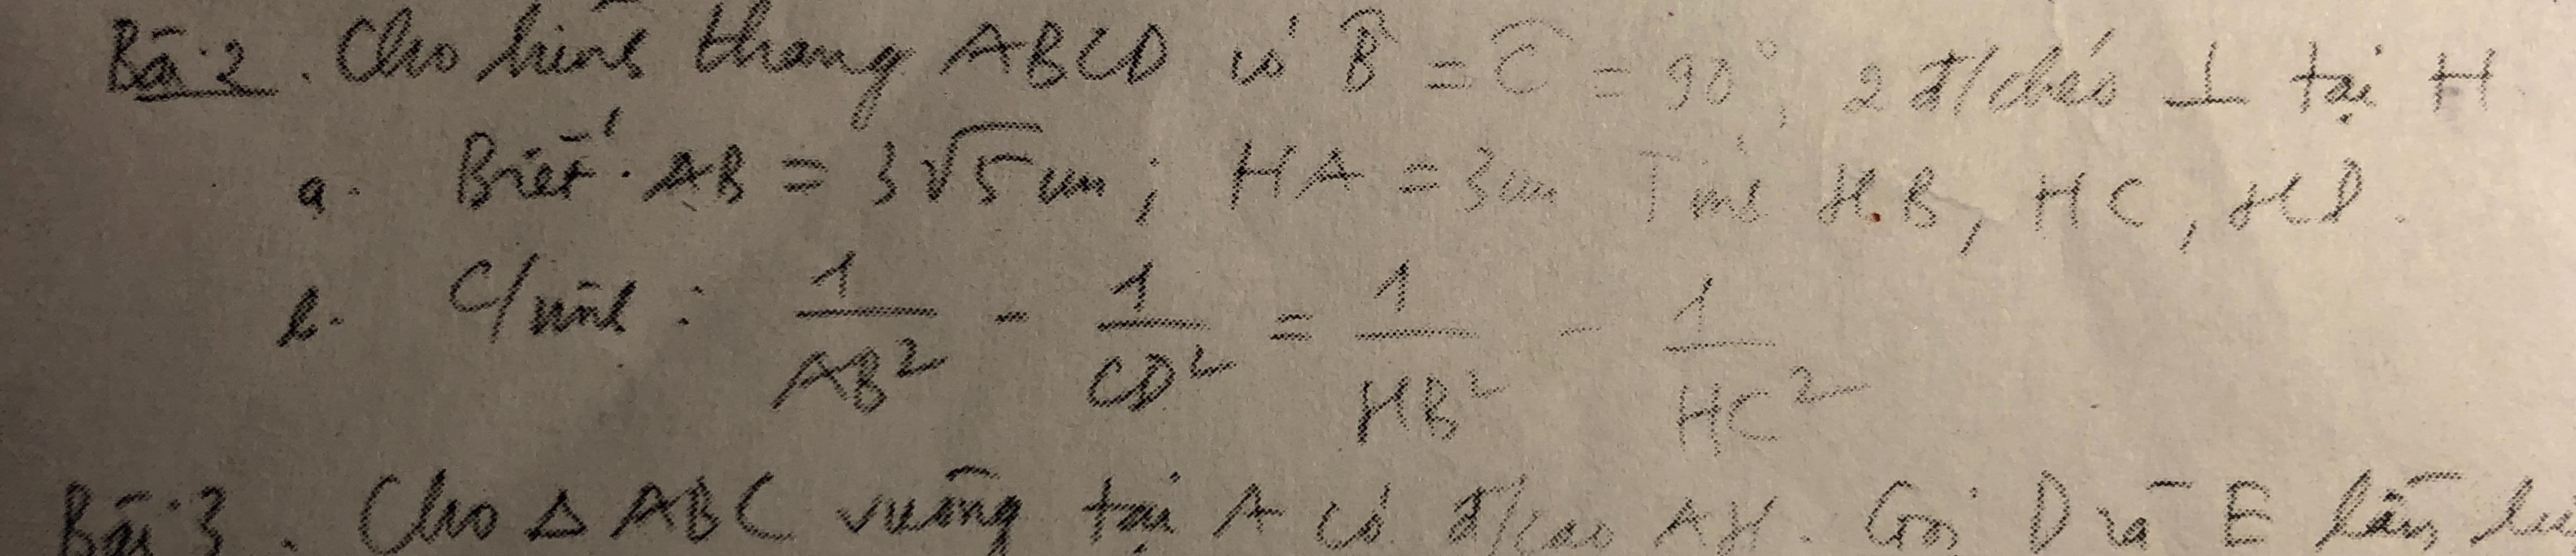 Bài 2. Cho hình thang ABCD có B̂ = Ĉ = 90°, 2 đ/chéo ⊥ tại H
a. Biết AB = 3√5 cm ; HA = 3cm Tính HB, HC, HD.
b. C/minh : 1/AB² - 1/CD² = 1/HB² - 1/HC²
Bài 3. Cho Δ ABC vuông tại A có đ/cao AH. Gọi D và E lần